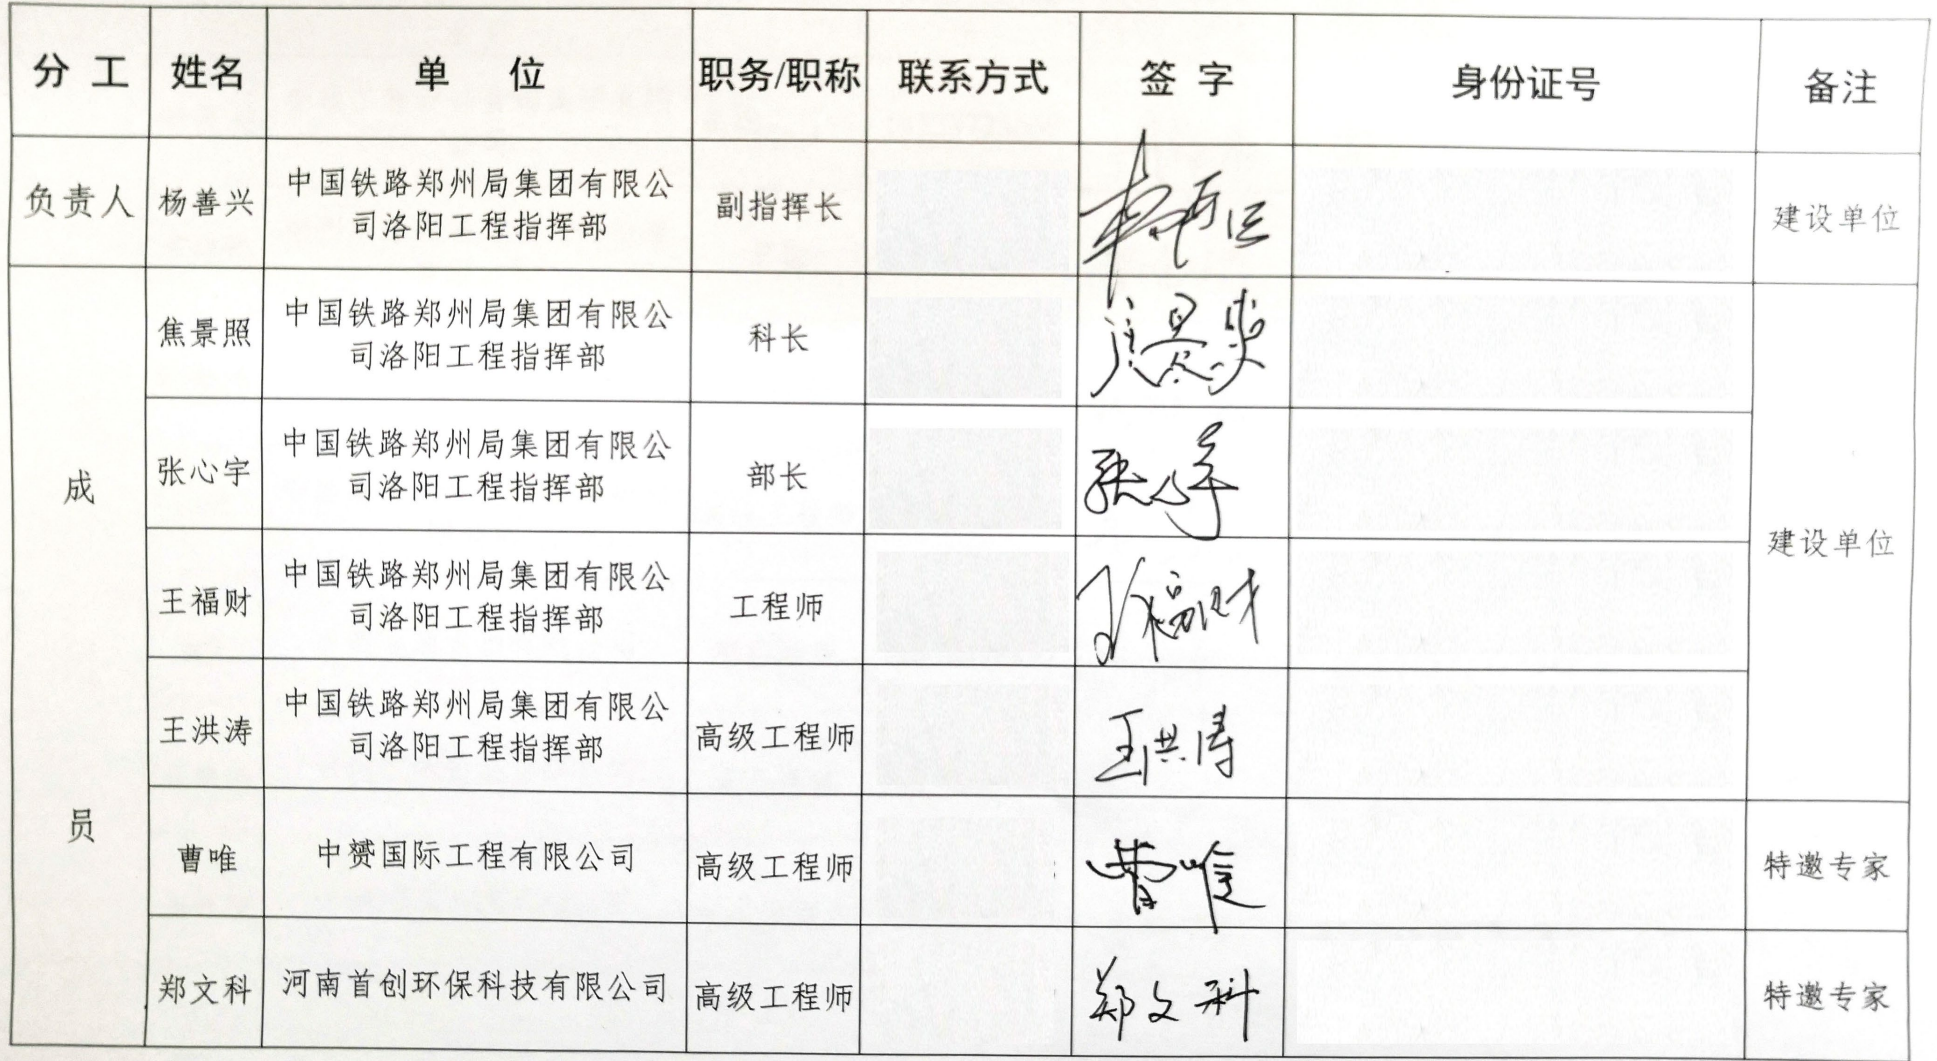 分 工 姓名 单 位 职务/职称 联系方式 签 字 身份证号 备注
负责人 杨善兴 中国铁路郑州局集团有限公
司洛阳工程指挥部 副指挥长 建设单位
成
员
焦景照 中国铁路郑州局集团有限公
司洛阳工程指挥部 科长 焦景照
张心宇 中国铁路郑州局集团有限公
司洛阳工程指挥部 部长 张心宇
建设单位
王福财 中国铁路郑州局集团有限公
司洛阳工程指挥部 工程师 王福财
王洪涛 中国铁路郑州局集团有限公
司洛阳工程指挥部 高级工程师 王洪涛
曹唯 中赟国际工程有限公司 高级工程师 曹唯 特邀专家
郑文科 河南首创环保科技有限公司 高级工程师 郑文科 特邀专家